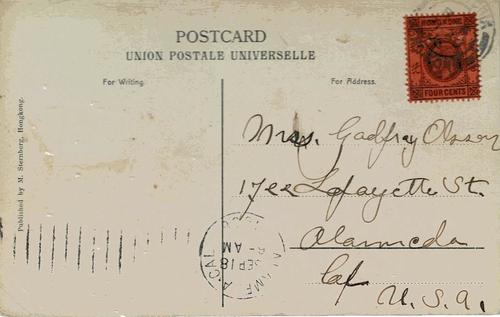 POSTCARD
UNION POSTALE UNIVERSELLE
For Writing.
For Address.
Published by M. Sternberg, Hongkong.
HONGKONG
FOUR CENTS
Mrs. Godfrey Olsson
1722 Lafayette St.
Alameda
Cal
U.S.A.
CAL.
SEP 18
AM